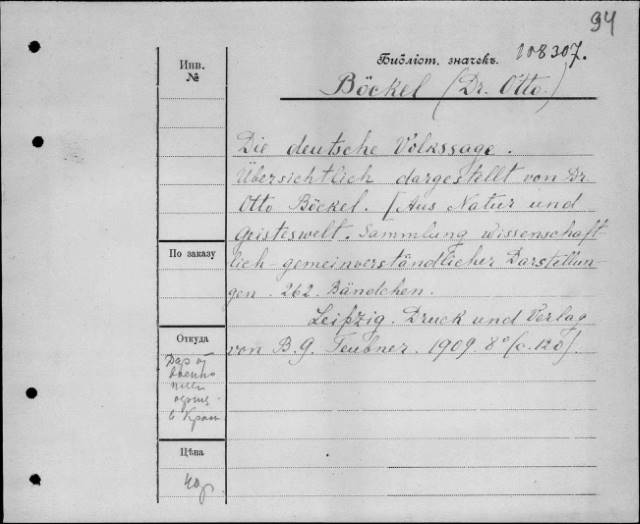 94
Библіот. значекъ. 108307.
Böckel (Dr. Otto)
Инв.
№
Die deutsche Volkssage.
Übersichtlich dargestellt von Dr
Otto Böckel. [Aus Natur und
Geisteswelt. Sammlung wissenschaft
lich-gemeinverständlicher Darstellun-
gen. 262. Bändchen.
Leipzig. Druck und Verlag
von B. G. Teubner. 1909. 8° [c. 120].
По заказу
Откуда
Дар
Цѣна
40